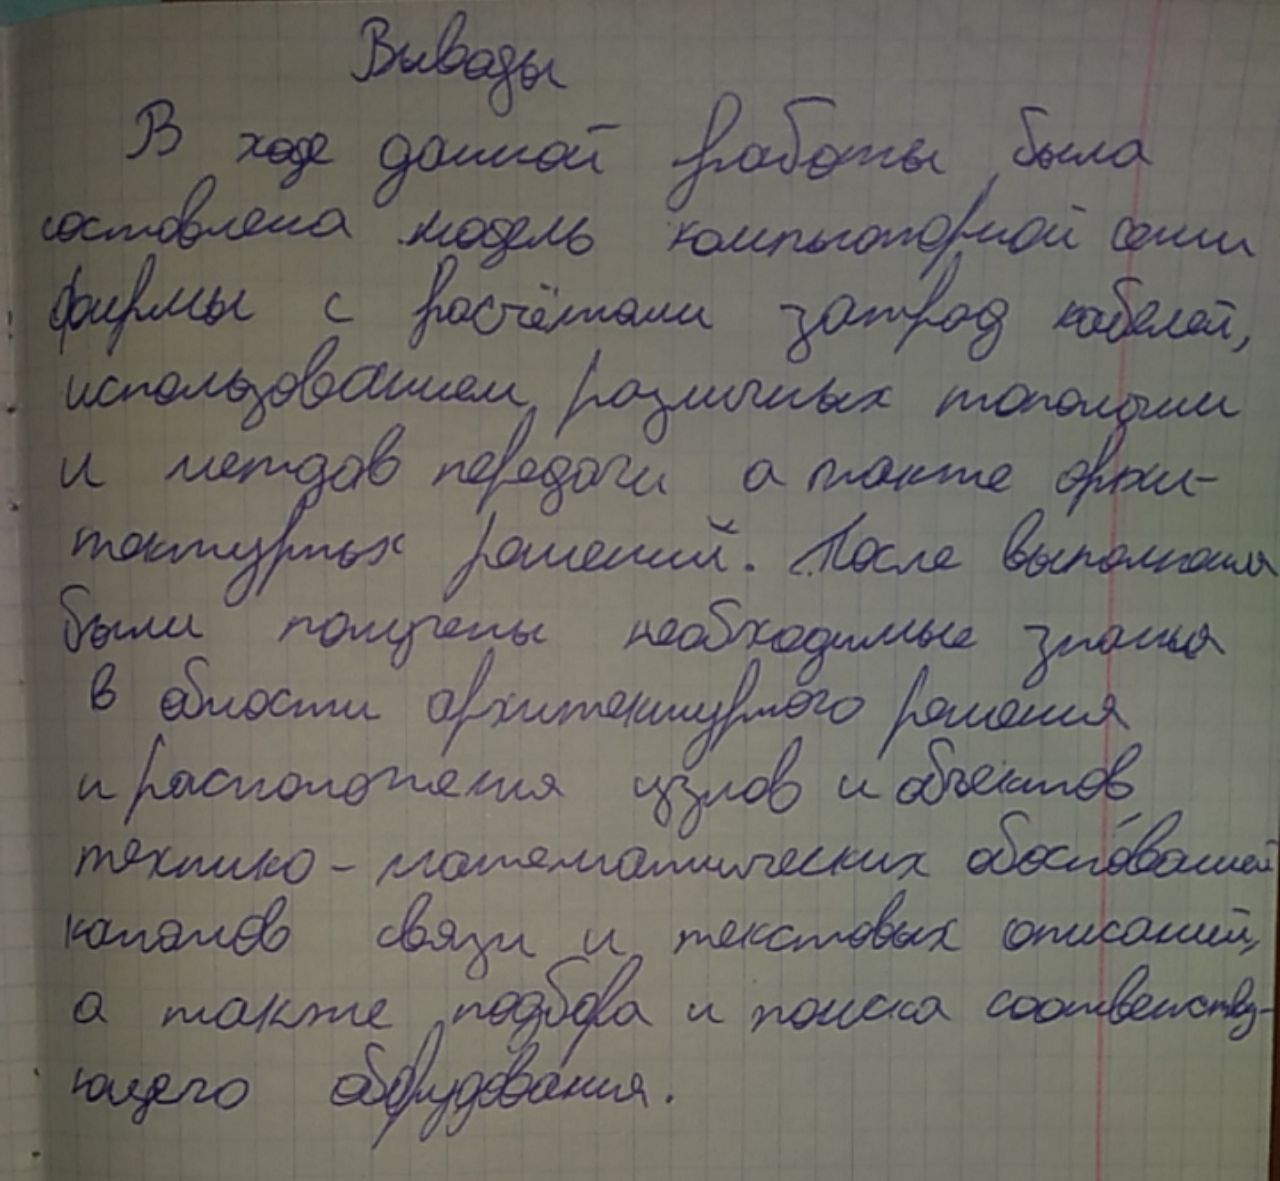 Выводы
В ходе данной работы была
составлена модель компьютерной сети
фирмы с расчётами затрад кабелей,
использованием различных топологии
и методов передачи а также архи-
тектурных решений. После выполнения
были получены необходимые знания
в области архитектурного решения
и расположения узлов и объектов
технико-математических обоснований
каналов связи и текстовых описаний,
а также подбора и поиска соответству-
ющего оборудования.